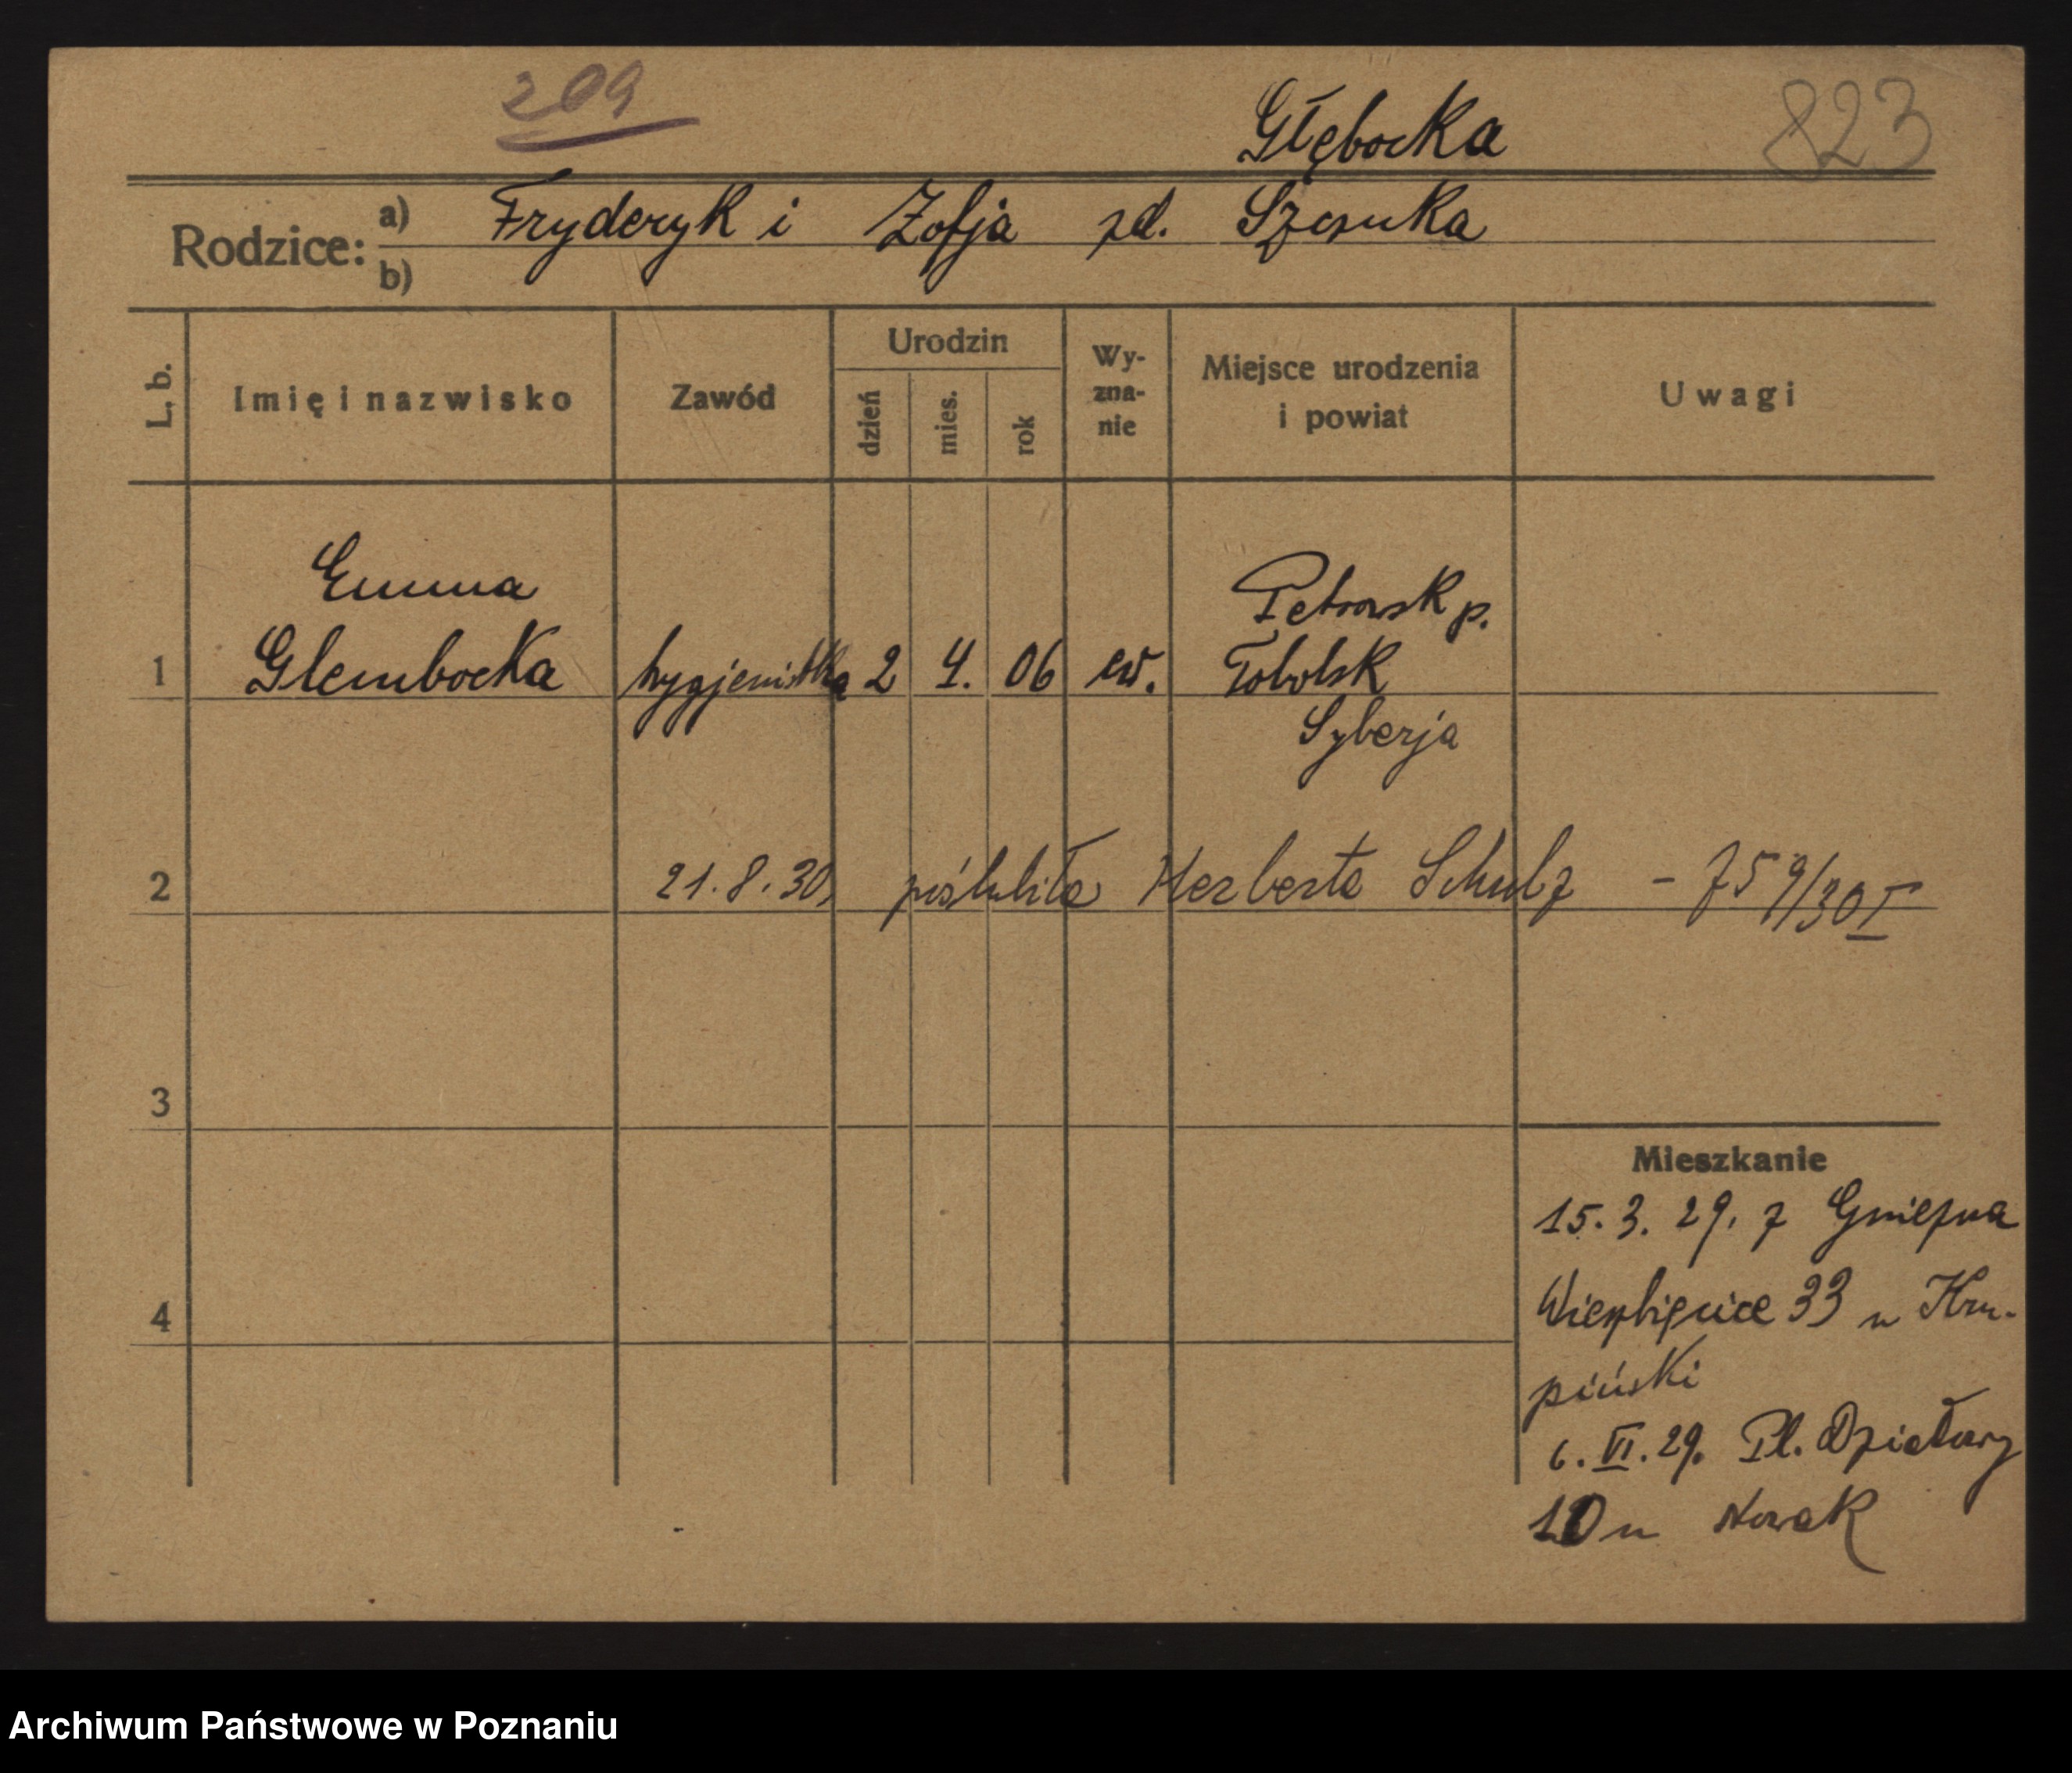 209
Głębocka 823
Rodzice: a) Fryderyk i Zofja zd. Szczuka
b)
L. b. Imię i nazwisko Zawód Urodzin dzień mies. rok Wy-zna-nie Miejsce urodzenia i powiat Uwagi
Emma Petrowsk p.
1 Glembocka hygjenistka 2 4. 06 ew. Tobolsk
Syberja
2 21.8.30, poślubiła Herberta Schulz - 759/30 I
3
Mieszkanie
15.3.29. z Gniezna
4 Wierzbięcice 33 u Kru-
piński
6.VI.29. Pl. Działowy
10 u Nowak
Archiwum Państwowe w Poznaniu